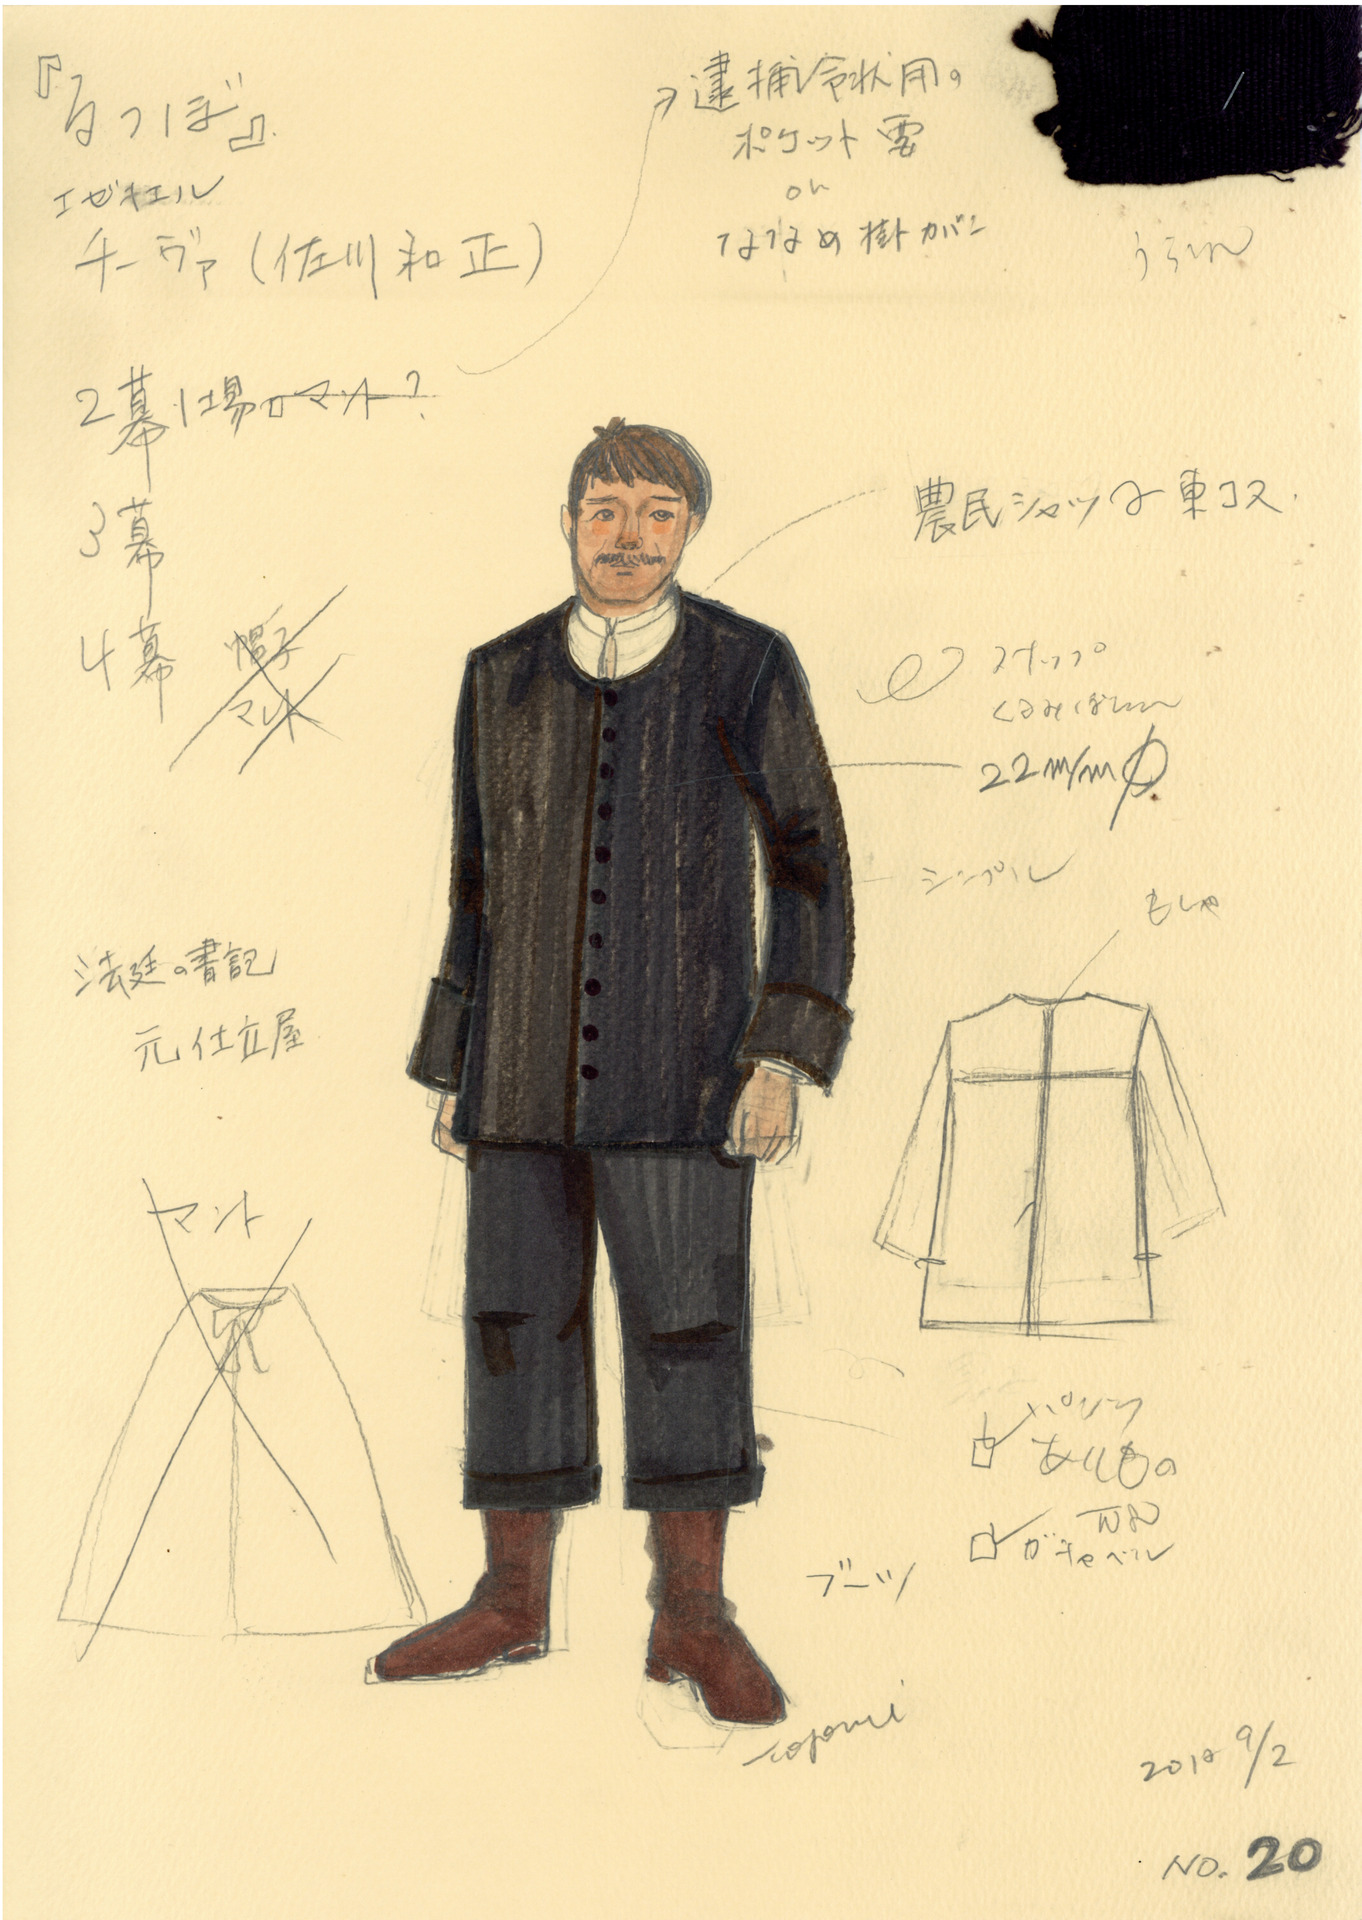 『るつぼ』
エゼキエル
チーヴァ(佐川和正)
逮捕令状用の
ポケット要
or
ななめ掛カバン
2幕1場のマント?
3幕
4幕
帽子
マント
農民シャツ
東コス.
スナップ
くるみぼたん
22m/mφ
シンプル
法廷の書記
元仕立屋
マント
パンツ
ありもの
ブーツ
9/2
NO. 20